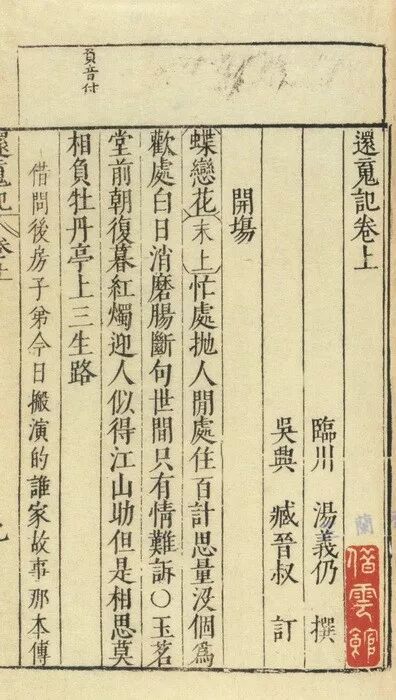 還䰟記卷上
臨川 湯義仍 撰
吳興 臧晉叔 訂
開塲
蝶戀花 末上 忙處抛人閒處住百計思量没個為
歡處白日消磨腸斷句世間只有情難訴○玉茗
堂前朝復暮紅燭迎人似得江山助但是相思莫
相負牡丹亭上三生路
負音付
借問後房子弟今日搬演的誰家故事那本傳
還䰟記 卷上